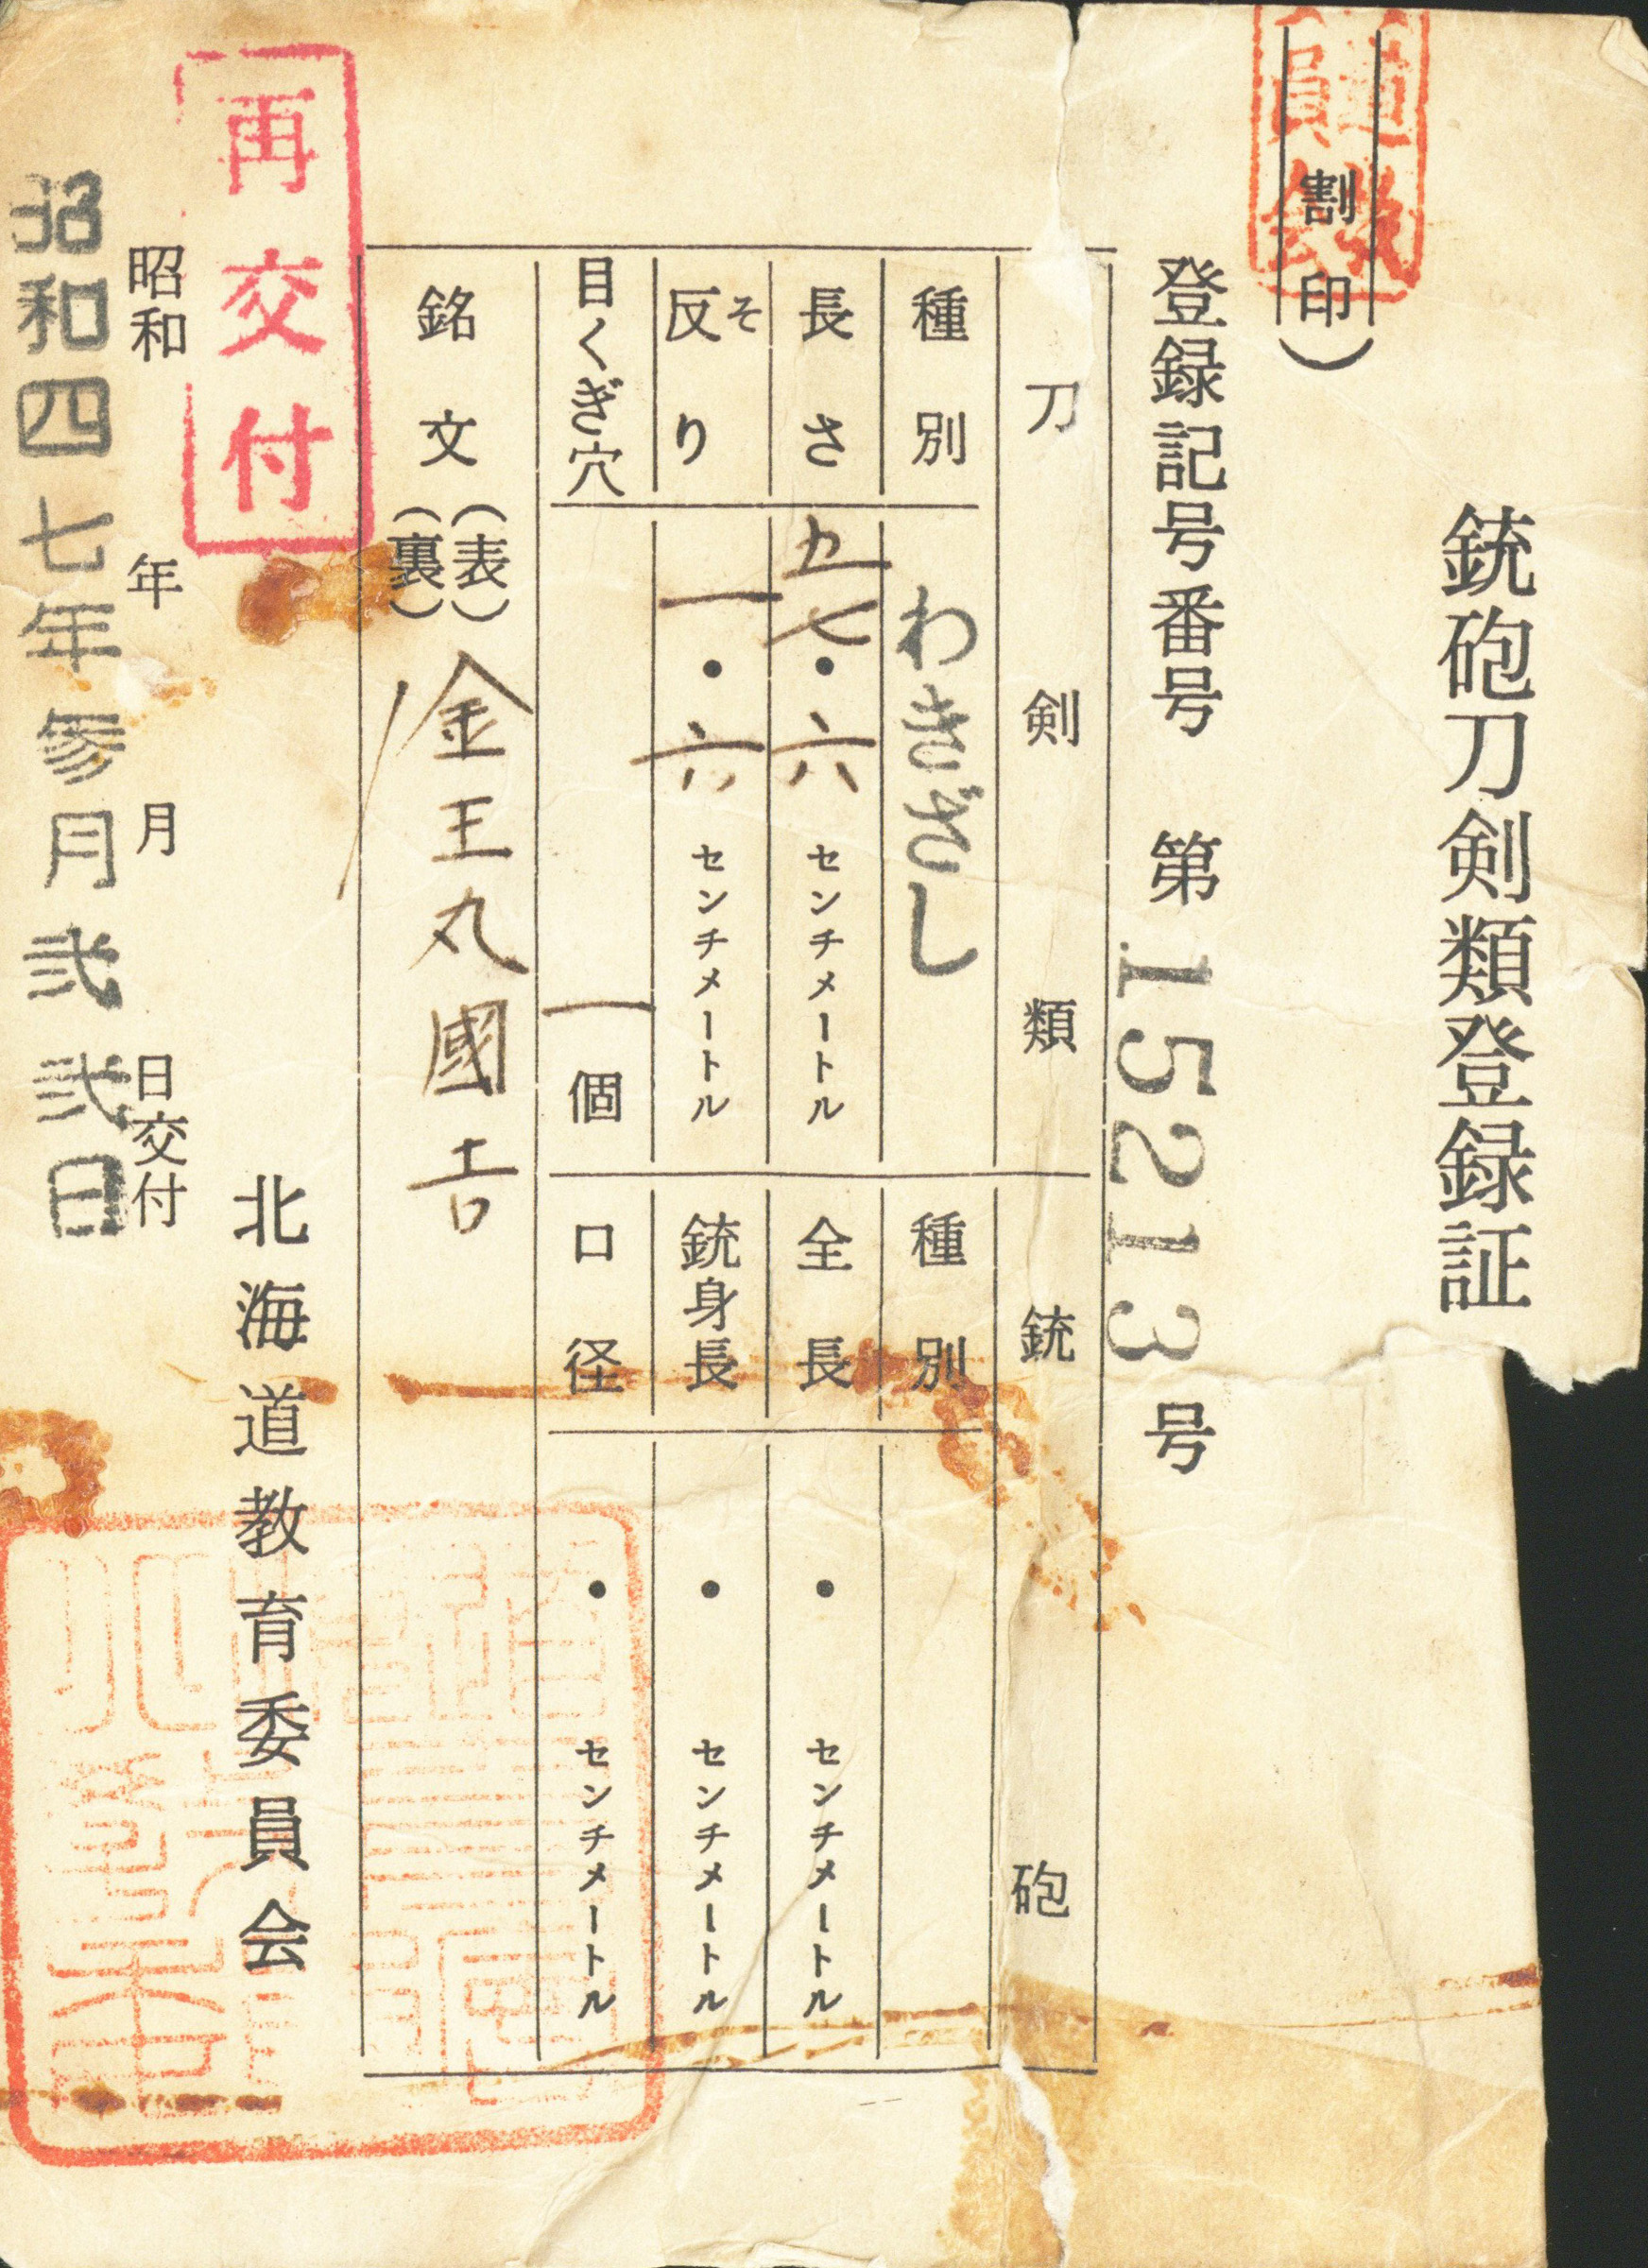 銃砲刀剣類登録証
割印)
登録記号番号 第15213号
刀剣類
銃砲
種別
わきざし
種別
長さ
五七・六センチメートル
全長
・センチメートル
反り
そ
一・六センチメートル
銃身長
・センチメートル
目くぎ穴
一個
口径
・センチメートル
銘文
(表)
(裏)
金王丸國吉
北海道教育委員会
再交付
昭和 年 月 日交付
昭和四七年参月弐弐日